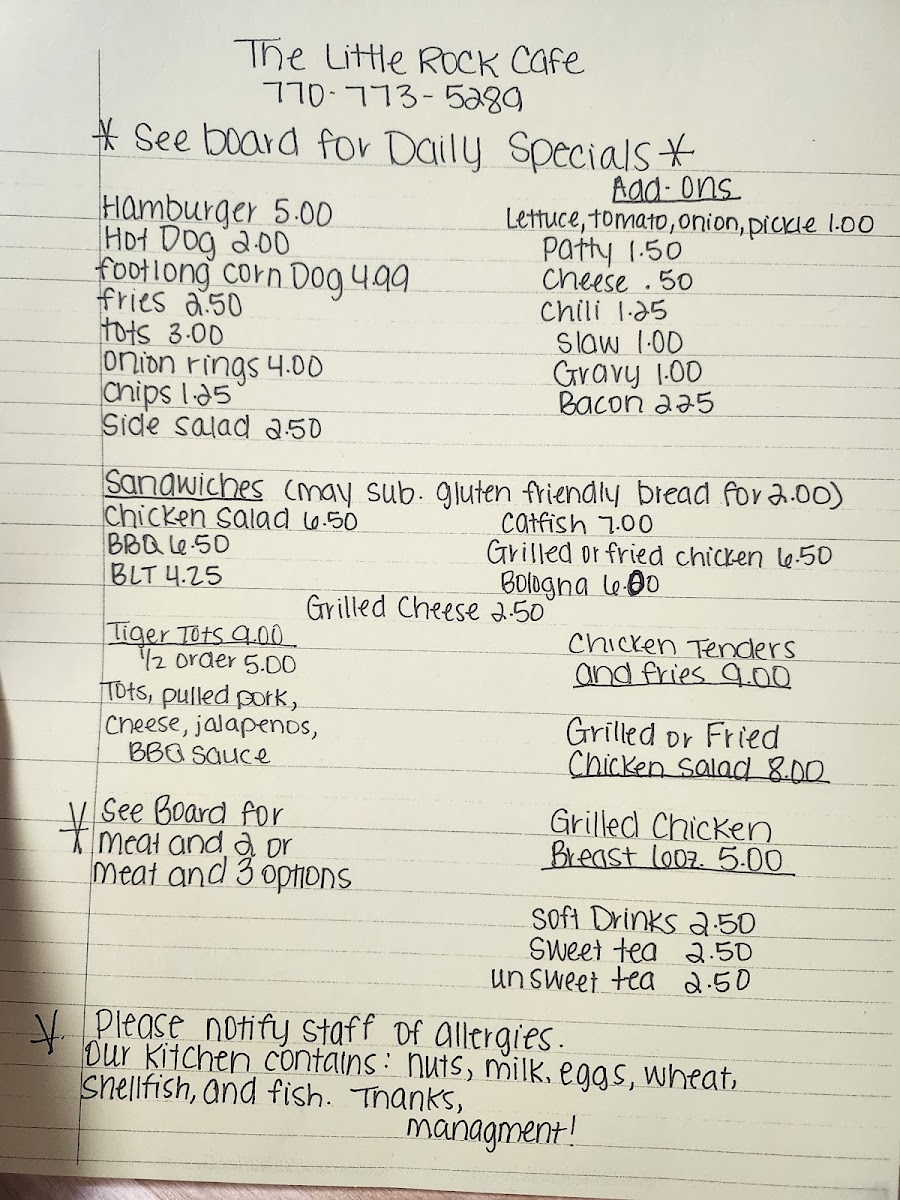 The Little Rock Cafe
770-773-5289
* See board for Daily Specials *
Hamburger 5.00
Hot Dog 2.00
footlong corn Dog 4.99
fries 2.50
tots 3.00
onion rings 4.00
Chips 1.25
Side salad 2.50
Add-ons
Lettuce, tomato, onion, pickle 1.00
Patty 1.50
Cheese .50
Chili 1.25
Slaw 1.00
Gravy 1.00
Bacon 2.25
Sandwiches (may sub. gluten friendly bread for 2.00)
Chicken Salad 6.50
BBQ 6.50
BLT 4.25
Catfish 7.00
Grilled or fried chicken 6.50
Bologna 6.00
Grilled Cheese 2.50
Tiger Tots 9.00
1/2 order 5.00
Tots, pulled pork,
Cheese, jalapenos,
BBQ Sauce
Chicken Tenders
and fries 9.00
Grilled or Fried
Chicken Salad 8.00
* See Board for
meat and 2 or
meat and 3 options
Grilled Chicken
Breast 6oz. 5.00
Soft Drinks 2.50
Sweet tea 2.50
unsweet tea 2.50
* Please notify staff of allergies.
Our kitchen contains: nuts, milk, eggs, wheat,
shellfish, and fish. Thanks,
managment!